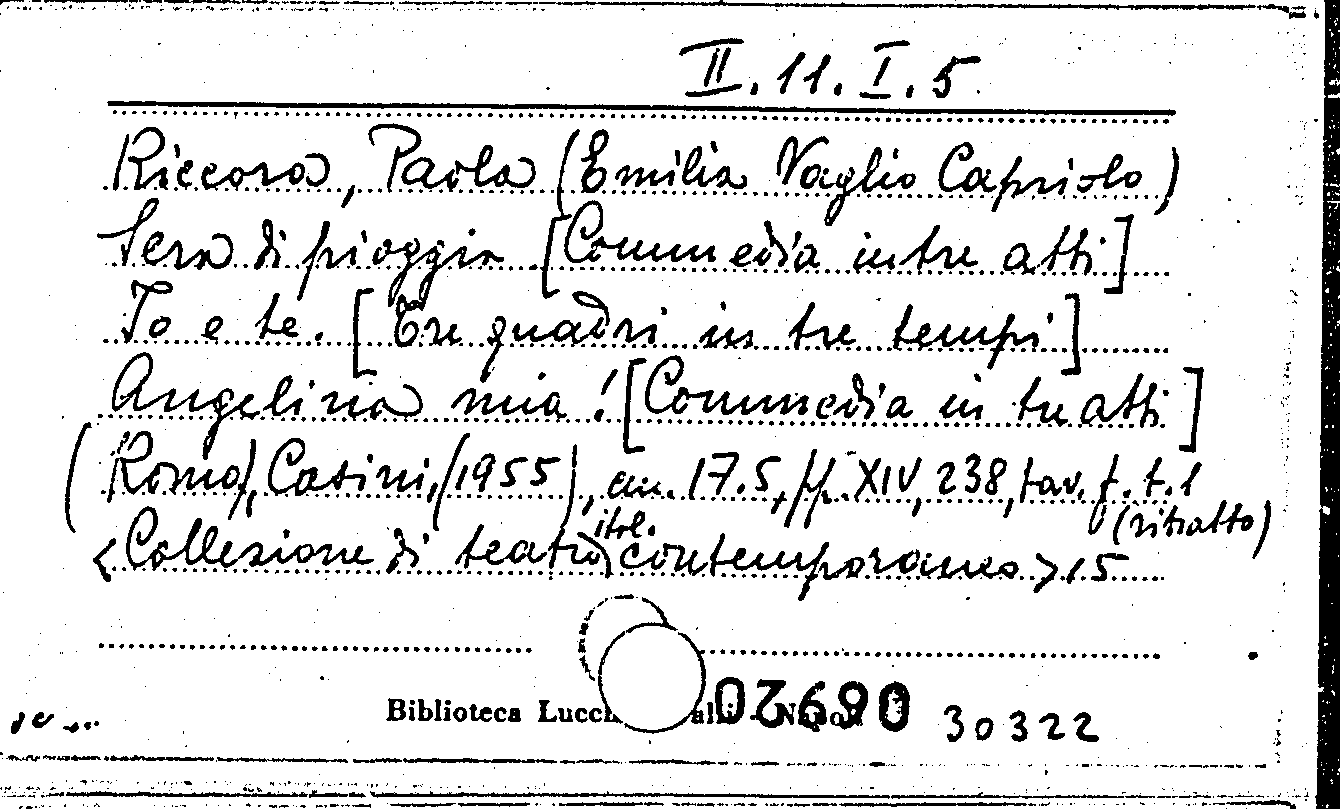 II.11.I.5
Riccora, Paola (Emilia Vaglio Capriolo)
Sera di pioggia [Commedia in tre atti]
Io e te. [Tre quadri in tre tempi]
Angelina mia! [Commedia in tre atti]
(Roma), Casini, (1955), cm. 17.5, pp. XIV, 238, tav. f. t. 1
(ritratto)
<Collezione di teatro ital. contemporaneo> 15
Biblioteca Lucch
30322